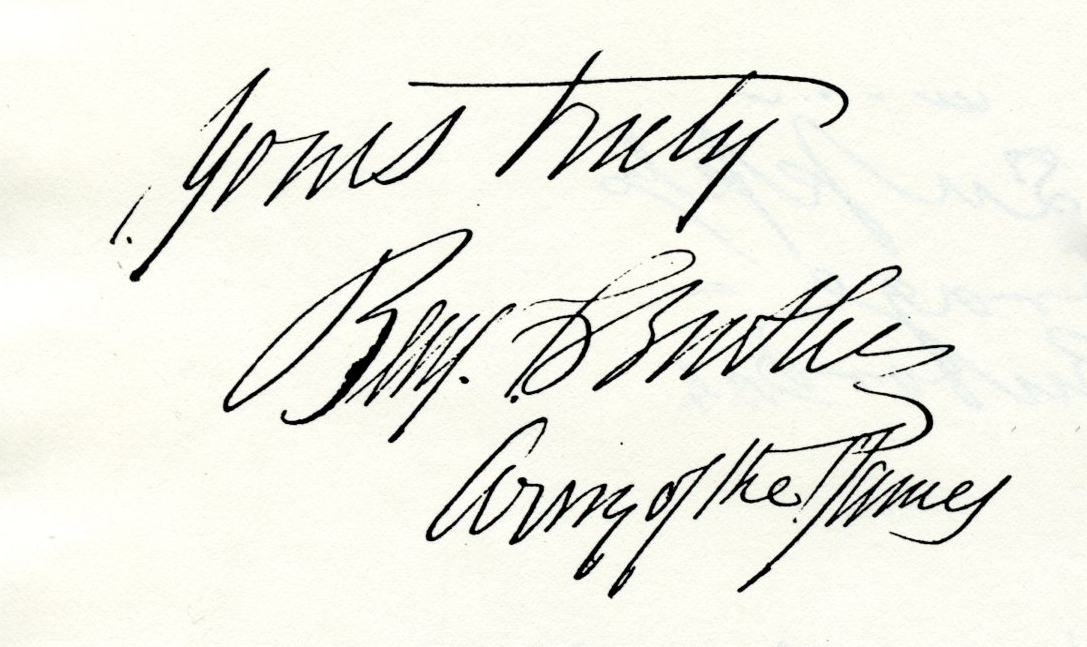 Yours Truly
Benj. F Butler
Army of the James